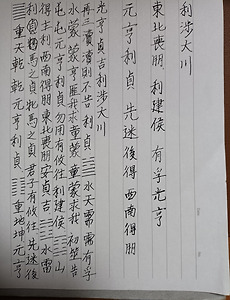 ䷀重天乾 乾元亨利貞 ䷁重地坤 元亨
利貞馬之貞牝馬之貞君子有攸往先迷後
得主利西南得朋東北喪朋安貞吉 ䷂水雷
屯屯元亨利貞勿用有攸往利建侯 ䷃山
水蒙蒙亨匪我求童蒙童蒙求我 初筮告
再三瀆瀆則不告利貞 ䷄水天需需有孚
光亨貞吉利涉大川
元亨利貞 先迷後得 西南得朋
東北喪朋 利建侯 有孚光亨
利涉大川